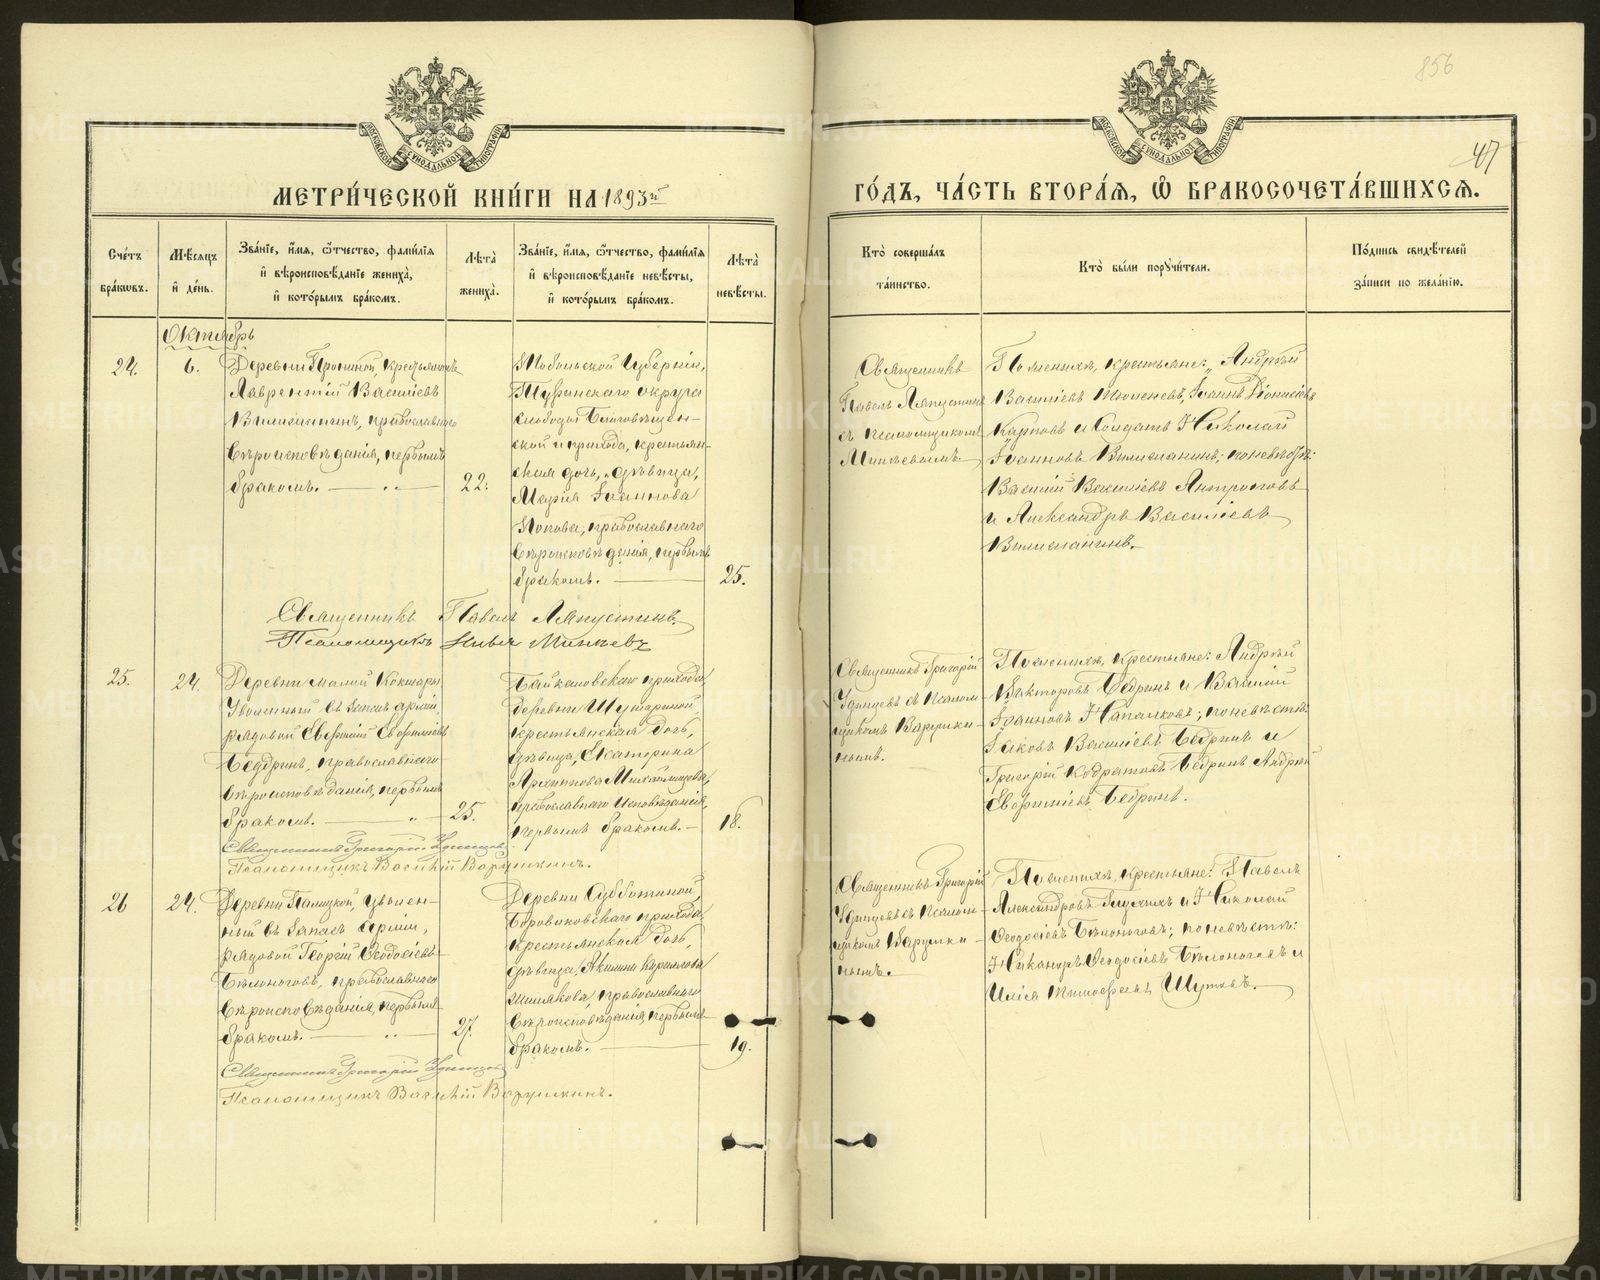 856
47
МОСКОВСКОЙ СѴНОДАЛЬНОЙ ТИПОГРАФІИ
МОСКОВСКОЙ СѴНОДАЛЬНОЙ ТИПОГРАФІИ
МЕТРИ́ЧЕСКОЙ КНИ́ГИ НА 1893й
ГО́ДЪ, ЧА́СТЬ ВТОРА́Я, Ѽ БРАКОСОЧЕТА́ВШИХСЯ.
Сче́тъ бра́кѡвъ.
Мѣ́сяцъ и҆ де́нь.
Зва́нїе, и҆́мя, ѻ҆́тчество, фами́лїя
и҆ вѣроисповѣ́данїе жениха̀,
и҆ кото́рымъ бра́комъ.
Лѣ́та жениха̀.
Зва́нїе, и҆́мя, ѻ҆́тчество, фами́лїя
и҆ вѣроисповѣ́данїе невѣ́сты,
и҆ кото́рымъ бра́комъ.
Лѣ́та невѣ́сты.
Кто̀ соверша́лъ та́инство.
Кто̀ бы́ли порꙋчи́тели.
По́дпись свидѣ́телей за́писи по жела́нїю.
Октябрь
24.
6.
Деревни Прониной, крестьянинъ
Лаврентій Василіевъ
православнаго
вѣроисповѣданія, первымъ
бракомъ.
22.
Тобольской Губерніи,
Туринскаго округа
слободы Благовѣщен-
ской и прихода, крестьян-
ская дочь, дѣвица,
Марія Іоаннова
Попова, православнаго
вѣроисповѣданія, первымъ
бракомъ.
25.
Священникъ
Павелъ Ляпустинъ
съ псаломщикомъ
Минѣевымъ.
По женихѣ, крестьяне: Андрей
Василіевъ Тюленевъ, Іоаннъ Діонисіевъ
Карповъ и Солдатъ Николай
Іоанновъ по невѣстѣ:
Василій Василіевъ Антроповъ
и Александръ Василіевъ
Священникъ Павелъ Ляпустинъ.
Псаломщикъ Илья Минѣевъ
25.
24.
Деревни Малой Кокшары
Уволенный въ запасъ арміи,
рядовой Евгеній
Бедринъ, православнаго
вѣроисповѣданія, первымъ
бракомъ.
25.
прихода
деревни
крестьянская дочь,
дѣвица, Екатерина
православнаго исповѣданія,
первымъ бракомъ.
18.
Священникъ Григорій
Удинцевъ съ псалом-
щикомъ Варушки-
нымъ.
По женихѣ, крестьяне: Андрей
Викторовъ Бедринъ и Василій
Іоанновъ по невѣстѣ:
Іаковъ Василіевъ Бедринъ и
Григорій Бедринъ Андрей
Бедринъ.
Священникъ Григорій Удинцевъ
Псаломщикъ Василій Варушкинъ.
26
24.
Деревни уволен-
ный въ запасъ арміи,
рядовой Георгій Ѳеодосіевъ
Бѣлоноговъ, православнаго
вѣроисповѣданія, первымъ
бракомъ.
27.
Деревни Субботиной
прихода,
крестьянская дочь,
дѣвица, Акилина Кириллова
православнаго
вѣроисповѣданія, первымъ
бракомъ.
19.
Священникъ Григорій
Удинцевъ съ псалом-
щикомъ Варушки-
нымъ.
По женихѣ, крестьяне: Павелъ
Александровъ Глухихъ и Николай
Ѳеодосіевъ Бѣлоноговъ; по невѣстѣ:
Никаноръ Ѳеодосіевъ Бѣлоноговъ и
Илія Тимоѳеевъ Шутовъ.
Священникъ Григорій Удинцевъ
Псаломщикъ Василій Варушкинъ.
METRIKI.GASO-URAL.RU